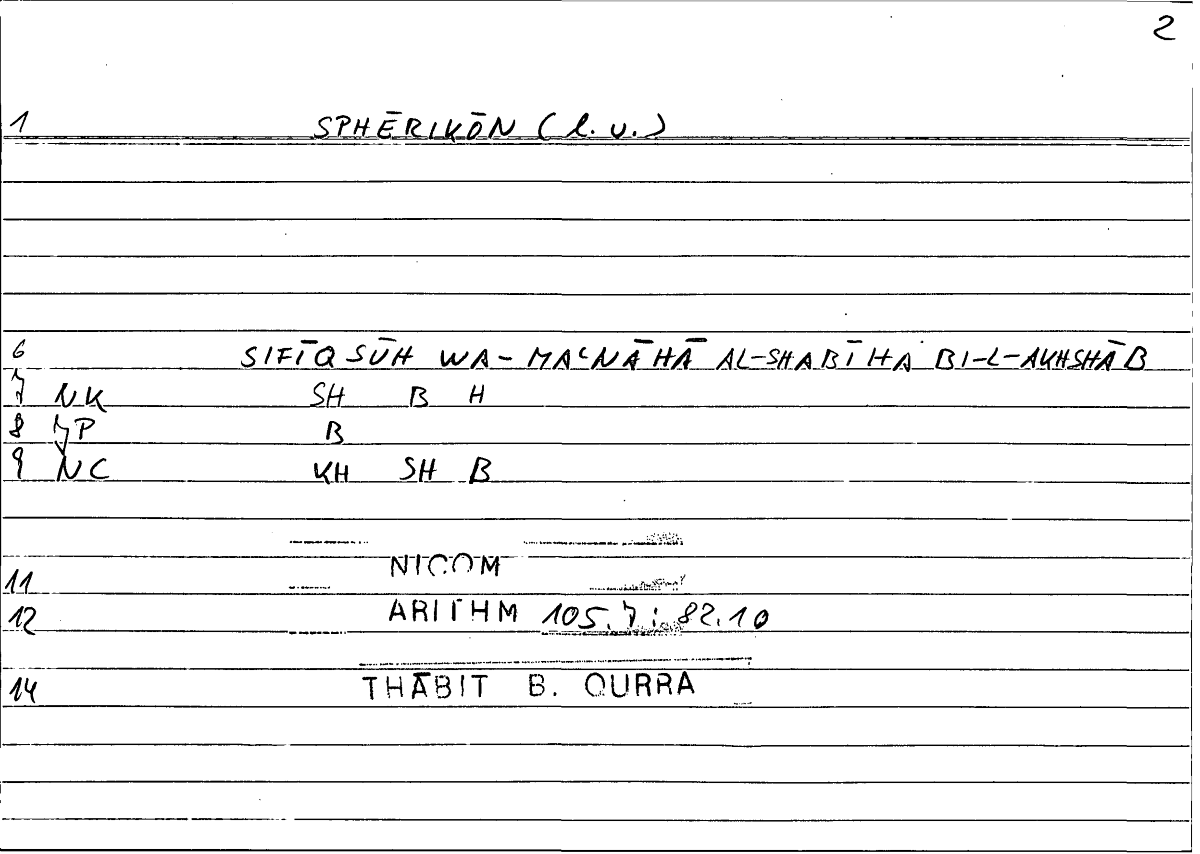 2
1 SPHĒRIKŌN (l. v.)
6 SIFĪQSŪH WA-MAʿNĀHĀ AL-SHABĪHA BI-L-AKHSHĀB
7 NK SH B H
8 7P B
9 NC KH SH B
11 NICOM
12 ARITHM 105.7 : 82.10
14 THĀBIT B. QURRA